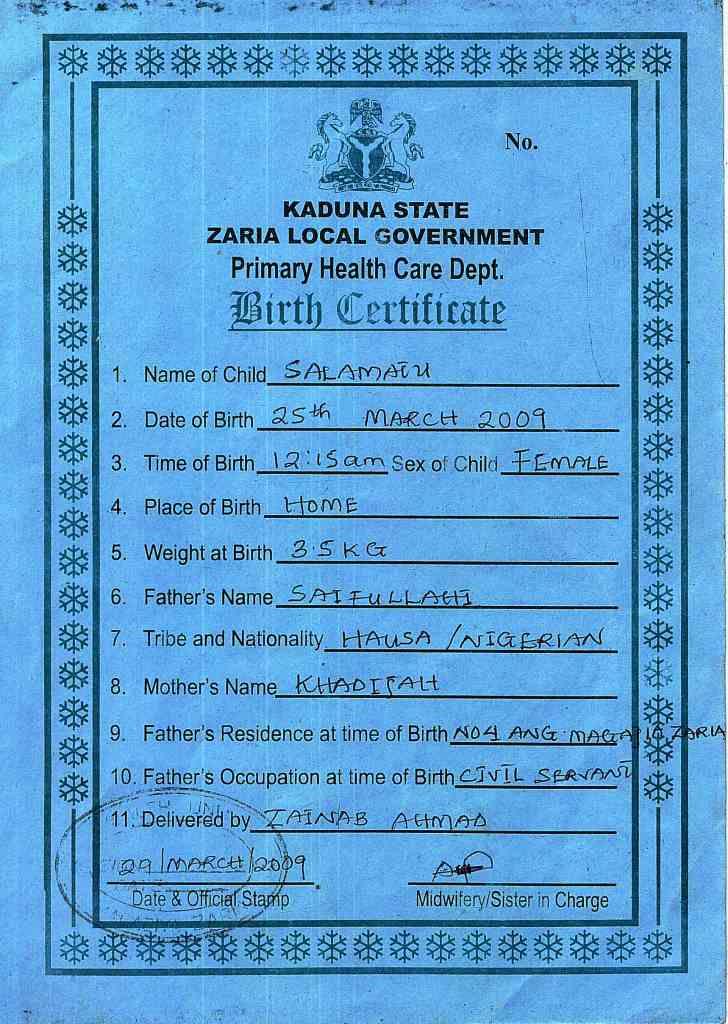 No.
KADUNA STATE
ZARIA LOCAL GOVERNMENT
Primary Health Care Dept.
Birth Certificate
1. Name of Child SALAMATU
2. Date of Birth 25th MARCH 2009
3. Time of Birth 12:15am Sex of Child FEMALE
4. Place of Birth HOME
5. Weight at Birth 3.5KG
6. Father's Name SAIFULLAHI
7. Tribe and Nationality HAUSA / NIGERIAN
8. Mother's Name KHADIJAH
9. Father's Residence at time of Birth NO4 ANG. ZARIA
10. Father's Occupation at time of Birth CIVIL SERVANT
11. Delivered by ZAINAB AHMAD
29/MARCH/2009
Date & Official Stamp Midwifery/Sister in Charge